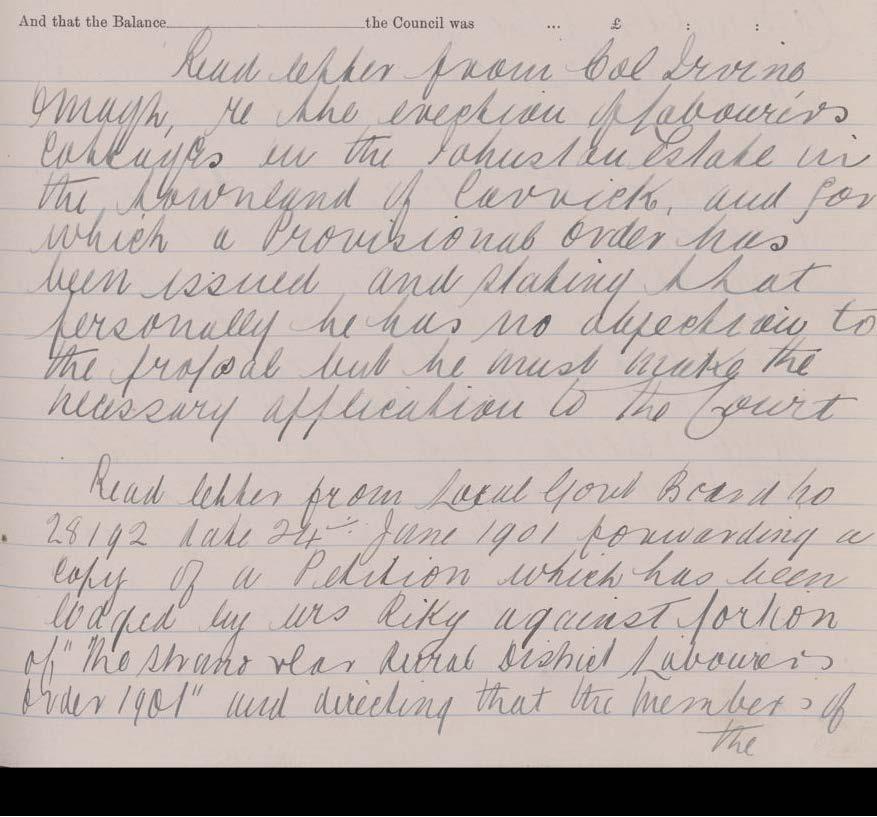 And that the Balance the Council was ... £ : :
Read letter from Col Irvine
Omagh, re the erection of labourers
Cottages on the Johnston Estate in
the townland of Carrick, and for
which a Provisional Order has
been issued and stating that
personally he has no objection to
the proposal but he must make the
necessary application to the Court
Read letter from Local Govt Board No
28192 date 24th June 1901 forwarding a
Copy of a Petition which has been
lodged by Mrs Riky against portion
of "The Stranorlar Rural District Labourers
Order 1901" and directing that the Members of
the